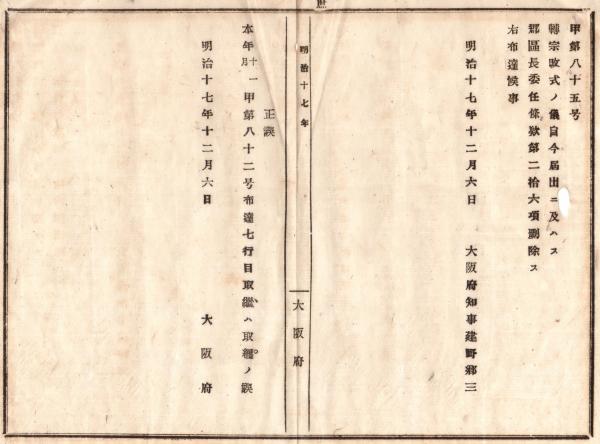 甲第八十五号
轉宗改式ノ儀自今屆出ニ及ハス
郡區長委任條欵第二拾六項刪除ス
右布達候事
明治十七年十二月六日　大阪府知事建野郷三
明治十七年　大阪府
正誤
本年十一月甲第八十二号布達七行目取繼ハ取纒ノ誤
明治十七年十二月六日　大阪府